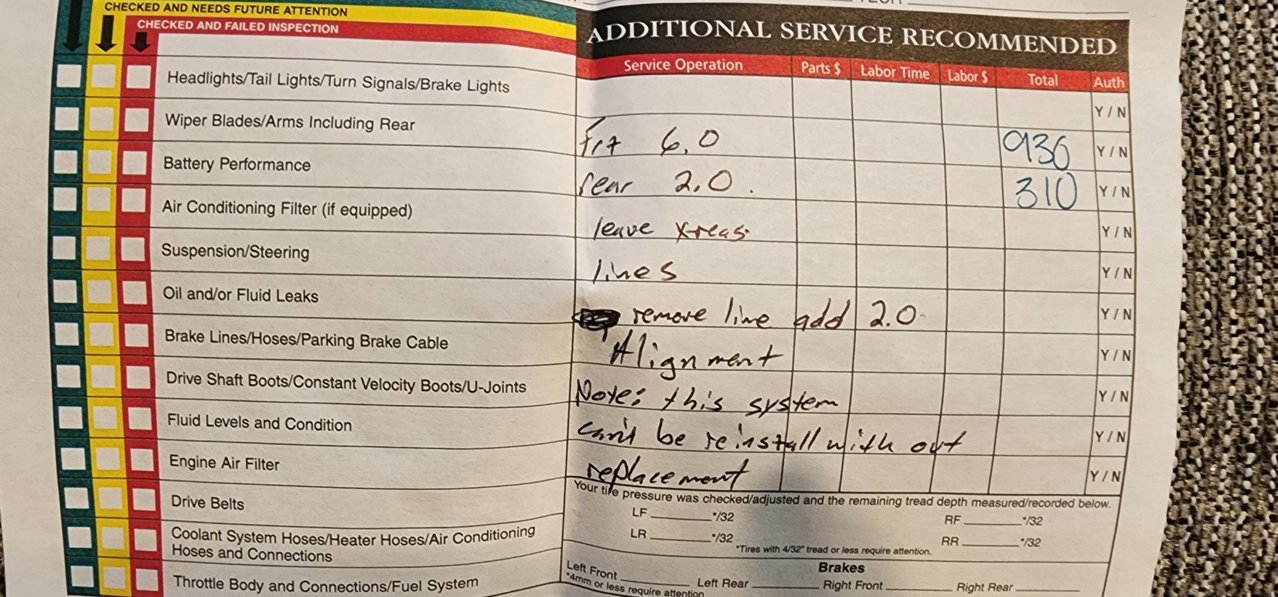 CHECKED AND NEEDS FUTURE ATTENTION
CHECKED AND FAILED INSPECTION
Headlights/Tail Lights/Turn Signals/Brake Lights
Wiper Blades/Arms Including Rear
Battery Performance
Air Conditioning Filter (if equipped)
Suspension/Steering
Oil and/or Fluid Leaks
Brake Lines/Hoses/Parking Brake Cable
Drive Shaft Boots/Constant Velocity Boots/U-Joints
Fluid Levels and Condition
Engine Air Filter
Drive Belts
Coolant System Hoses/Heater Hoses/Air Conditioning
Hoses and Connections
Throttle Body and Connections/Fuel System
ADDITIONAL SERVICE RECOMMENDED
Service Operation Parts $ Labor Time Labor $ Total Auth
Y / N
frt 6.0 930 Y / N
rear 2.0. 310 Y / N
leave Y / N
lines Y / N
remove line add 2.0 Y / N
Alignment Y / N
Note: this system Y / N
can't be reinstall with out Y / N
replacement Y / N
Your tire pressure was checked/adjusted and the remaining tread depth measured/recorded below.
LF ______"/32 RF ______"/32
LR ______"/32 RR ______"/32
*Tires with 4/32" tread or less require attention.
Brakes
Left Front ______ Left Rear ______ Right Front ______ Right Rear ______
*4mm or less require attention